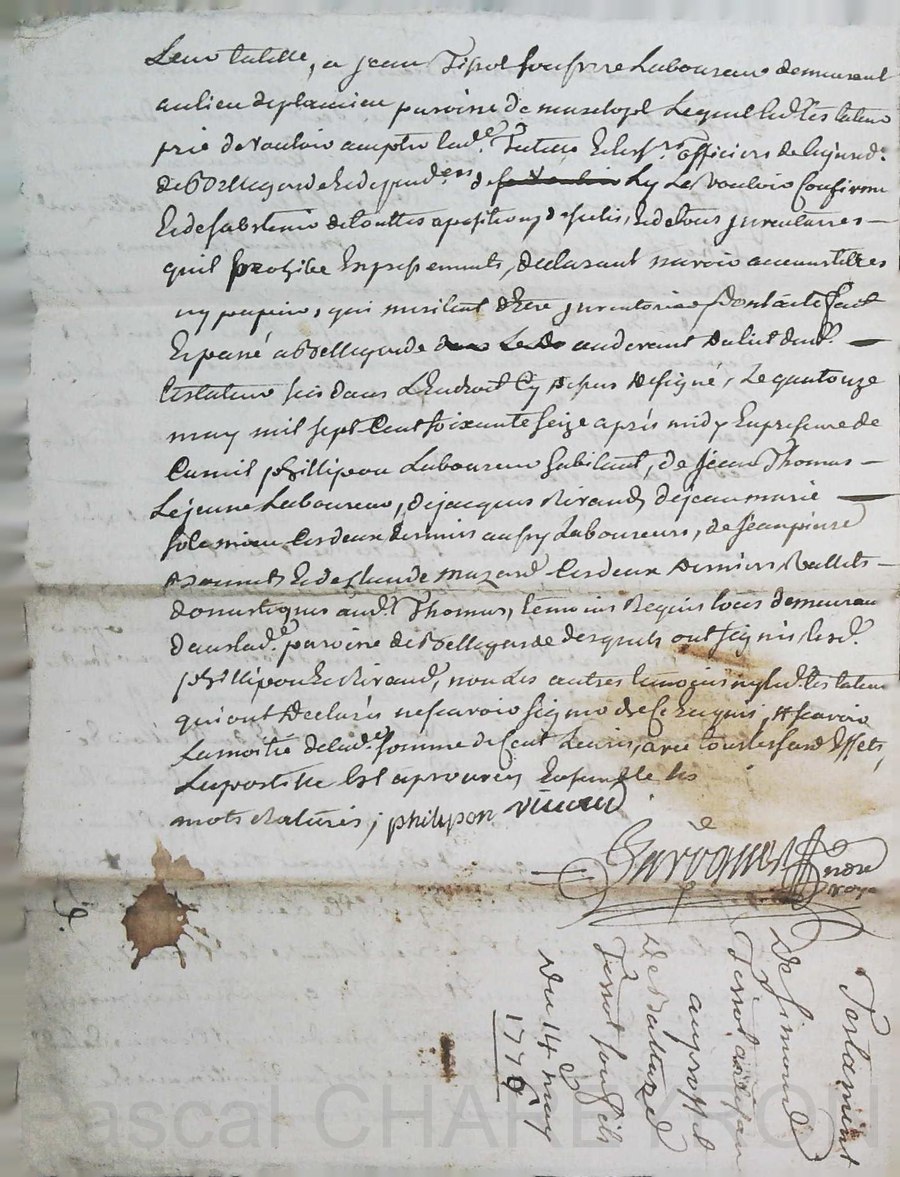 Leur tutelle, a jean Tissot son frere Laboureur demeurant
au lieu de plamieu paroisse de Lequel led. testateur
prie de vouloir accepter lad.e Tutelle Et les s.rs officiers de la jurid.
de Bellegarde Et depend.ces de Ly Le vouloir Confirmer
Et de sabstenir de touttes apositions de selés, Et de tous Inventaires
quil prohibe Expressement, declarant navoir
ny papiers, qui meritent dEtre Inventoriés Dont acte fait
Et passé a Bellegarde au devant du lit dud.
testateur sis dans L'Endroit Cy dessus designé, Le quatorze
may mil sept Cent soixante seize après midy En presence de
Camil phillipon Laboureur habitant, de jean Thomas
Le jeune Laboureur, de jacques Riraud, de jean marie
Les deux derniers aussy Laboureurs, de jean pierre
Et de Claude mazard Les deux derniers Vallets
domestiques aud. Thomas, temoins Requis tous demeurans
dans lad.e paroisse de Bellegarde desquels ont signés lesd.
phillipon Et Riraud, non Les autres temoins ny led. testateur
qui ont declarés ne scavoir signer de Ce Enquis, scavoir
La moitié de lad.e somme de Cent Livres, avec tous lesd Effets,
La postille Est aprouvée, Ensemble les
mots Raturés; philipon
nore
royal
Testament
De Simond
Tissot
au proffit
De Baltazard
Tissot son fils
Du 14 may
1776
Pascal CHAREYRON